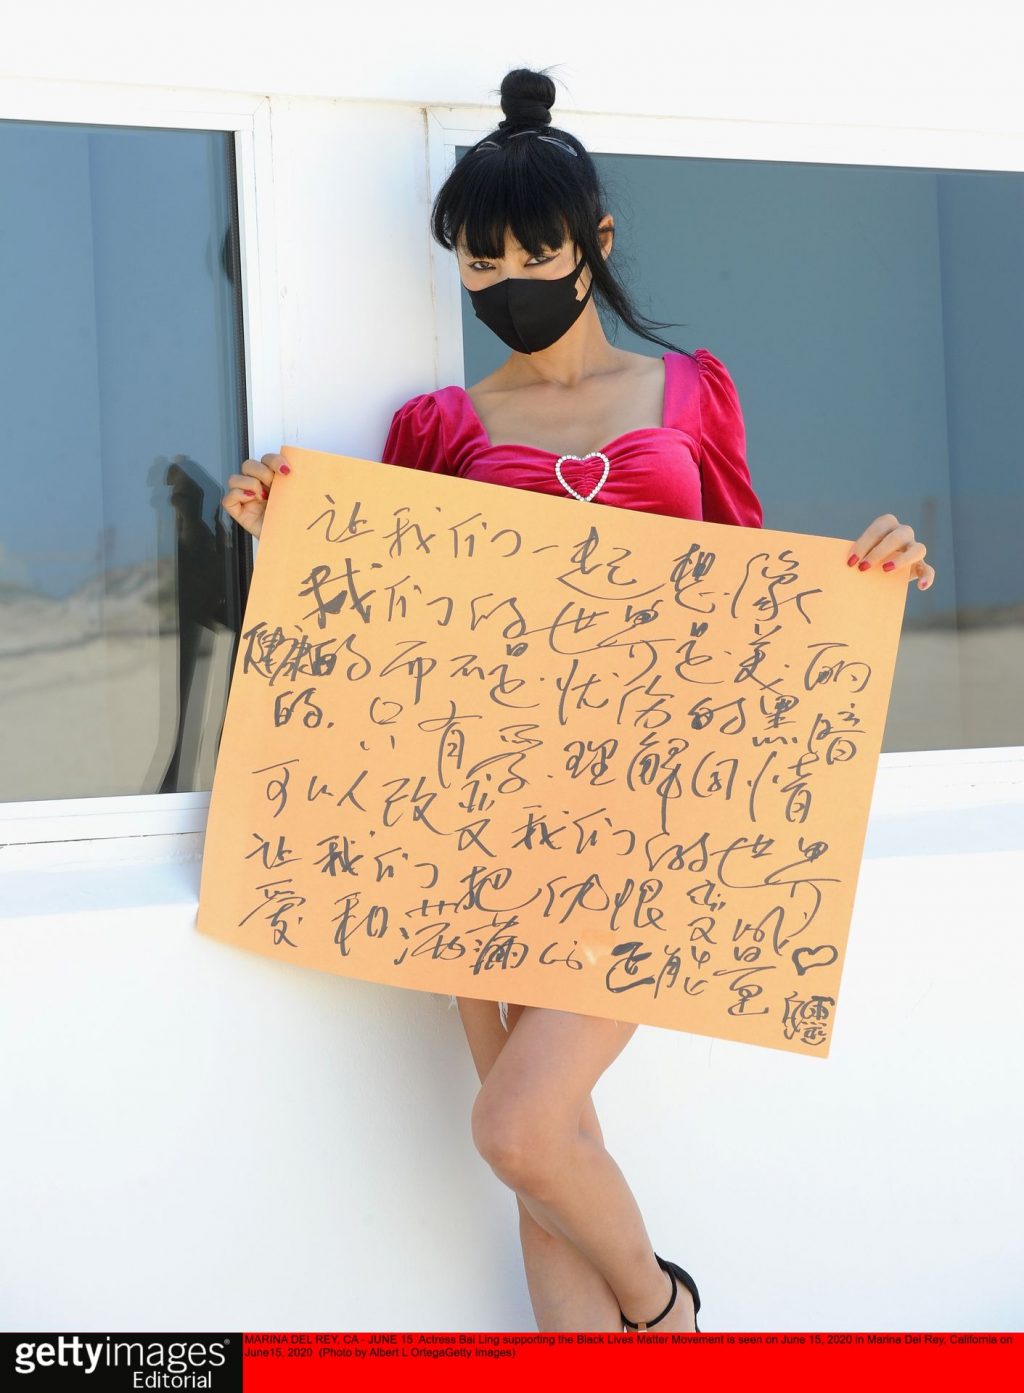 让我们一起想像
我们的世界是美丽
健康的而不是忧伤的黑暗
的.只有爱.理解同情
可以改变我们的世界
让我们把仇恨变成
爱和洒满心正能量♡
gettyimages®
Editorial
MARINA DEL REY, CA - JUNE 15 Actress Bai Ling supporting the Black Lives Matter Movement is seen on June 15, 2020 in Marina Del Rey, California on
June15, 2020 (Photo by Albert L OrtegaGetty Images)